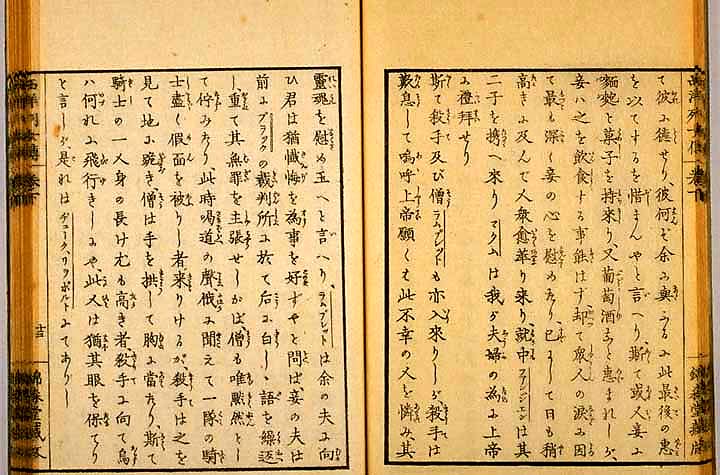 て彼ニ徳せり、彼何ぞ余ニ與ふるニ此最後の恵
を以てするを惜まんやと言へり、斯て或人妾ニ
麺麭と菓子を持來り、又葡萄酒を恵まれしが、
妾ハ之を飲食する事能はず却て衆人の涙ニ因
て最も深く妾の心を慰めたり已ニして日も稍
高きニ及んで人衆愈華り來り就中
二子を携へ來り マクムは我が夫婦の為ニ上帝
ニ禮拜せり
斯て殺手及び僧ラムプレットも亦入來りしが殺手は
歎息して嗚呼上帝願くは此不幸の人を憐み其
靈魂を慰め玉へと言へり、ラムプレットは余の夫ニ向
ひ君は猶懺悔を為事を好ずやと問ば妾の夫は
前ニブラックの裁判所ニ於て后ニ白し、語を繰返
し、重て其無罪を主張せしかば、僧も唯黙然とし
て佇みたり此時喝道の聲俄ニ聞えて一隊の騎
士盡く假面を被りし者、來りけるが、殺手は之を
見て地ニ跪き、僧は手を拱して胸ニ當たり、斯て
騎士の一人身の長け尤も高き者殺手ニ向て烏
ハ何れニ飛行きしニや、此又は猶其眼を保てり
と言しが、是れはヂューク、リウボルトニてありし
西洋列女傳 巻下
廿三
錦森堂蔵板